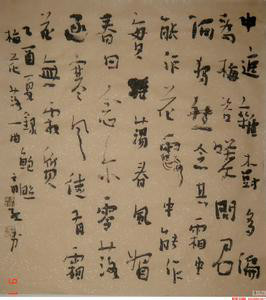 中庭雜樹多偏
為梅咨嗟問君
何獨然念其霜中
能作花露中能作
實搖蕩春風媚
春日念尔零落
逐寒風徒有霜
花無霜質
乙酉夏錄鮑照
梅花落一曲